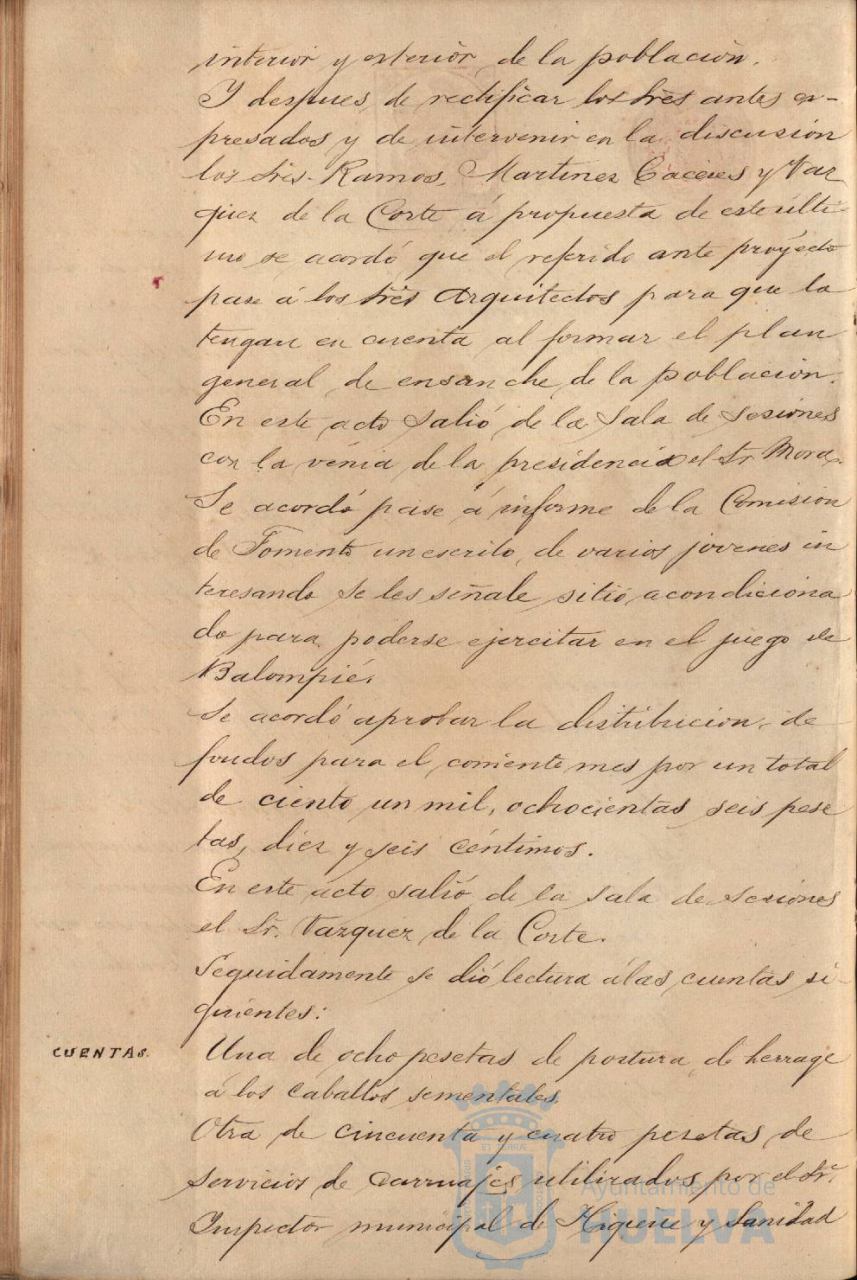 interior y esterior de la población.
Y despues de rectificar los Sres antes es-
presados y de intervenir en la discusión
los Sres. Ramos, Martinez Caceres y Vaz
quez de la Corte á propuesta de este ulti-
mo se acordó que el referido ante proyecto
pase á los Sres Arquitectos para que la
tengan en cuenta al formar el plan
general de ensanche de la población.
En este acto salió de la Sala de sesiones
con la vénia de la presidencia el Sr Mora.
Se acordó pase á informe de la Comision
de Fomento un escrito de varios jovenes in
teresando se les señale sitio acondiciona
do para poderse ejercitar en el juego de
Balompié.
Se acordó aprobar la distribucion de
fondos para el corriente mes por un total
de ciento un mil, ochocientas seis pese
tas, diez y seis céntimos.
En este acto salió de la sala de sesiones
el Sr. Vazquez de la Corte.
Seguidamente se dió lectura á las cuentas si-
guientes:
CUENTAS.
Una de ocho pesetas de postura de herrage
á los caballos sementales.
Otra de cincuenta y cuatro pesetas de
servicios de carruajes utilizados por el Sr.
Inspector municipal de Higiene y Sanidad
Ayuntamiento de
HUELVA